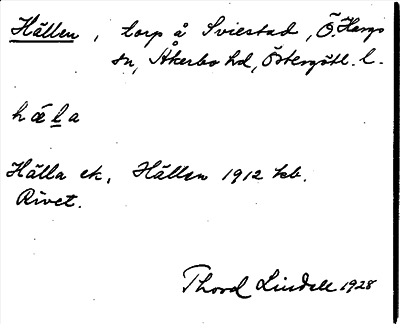 Hällen, torp å Sviestad, Ö. Hargs
sn, Åkerbo hd, Östergötl. l.
hǽla
Hälla ek. Hällen 1912 kb.
Rivet.
Thord Lindell 1928